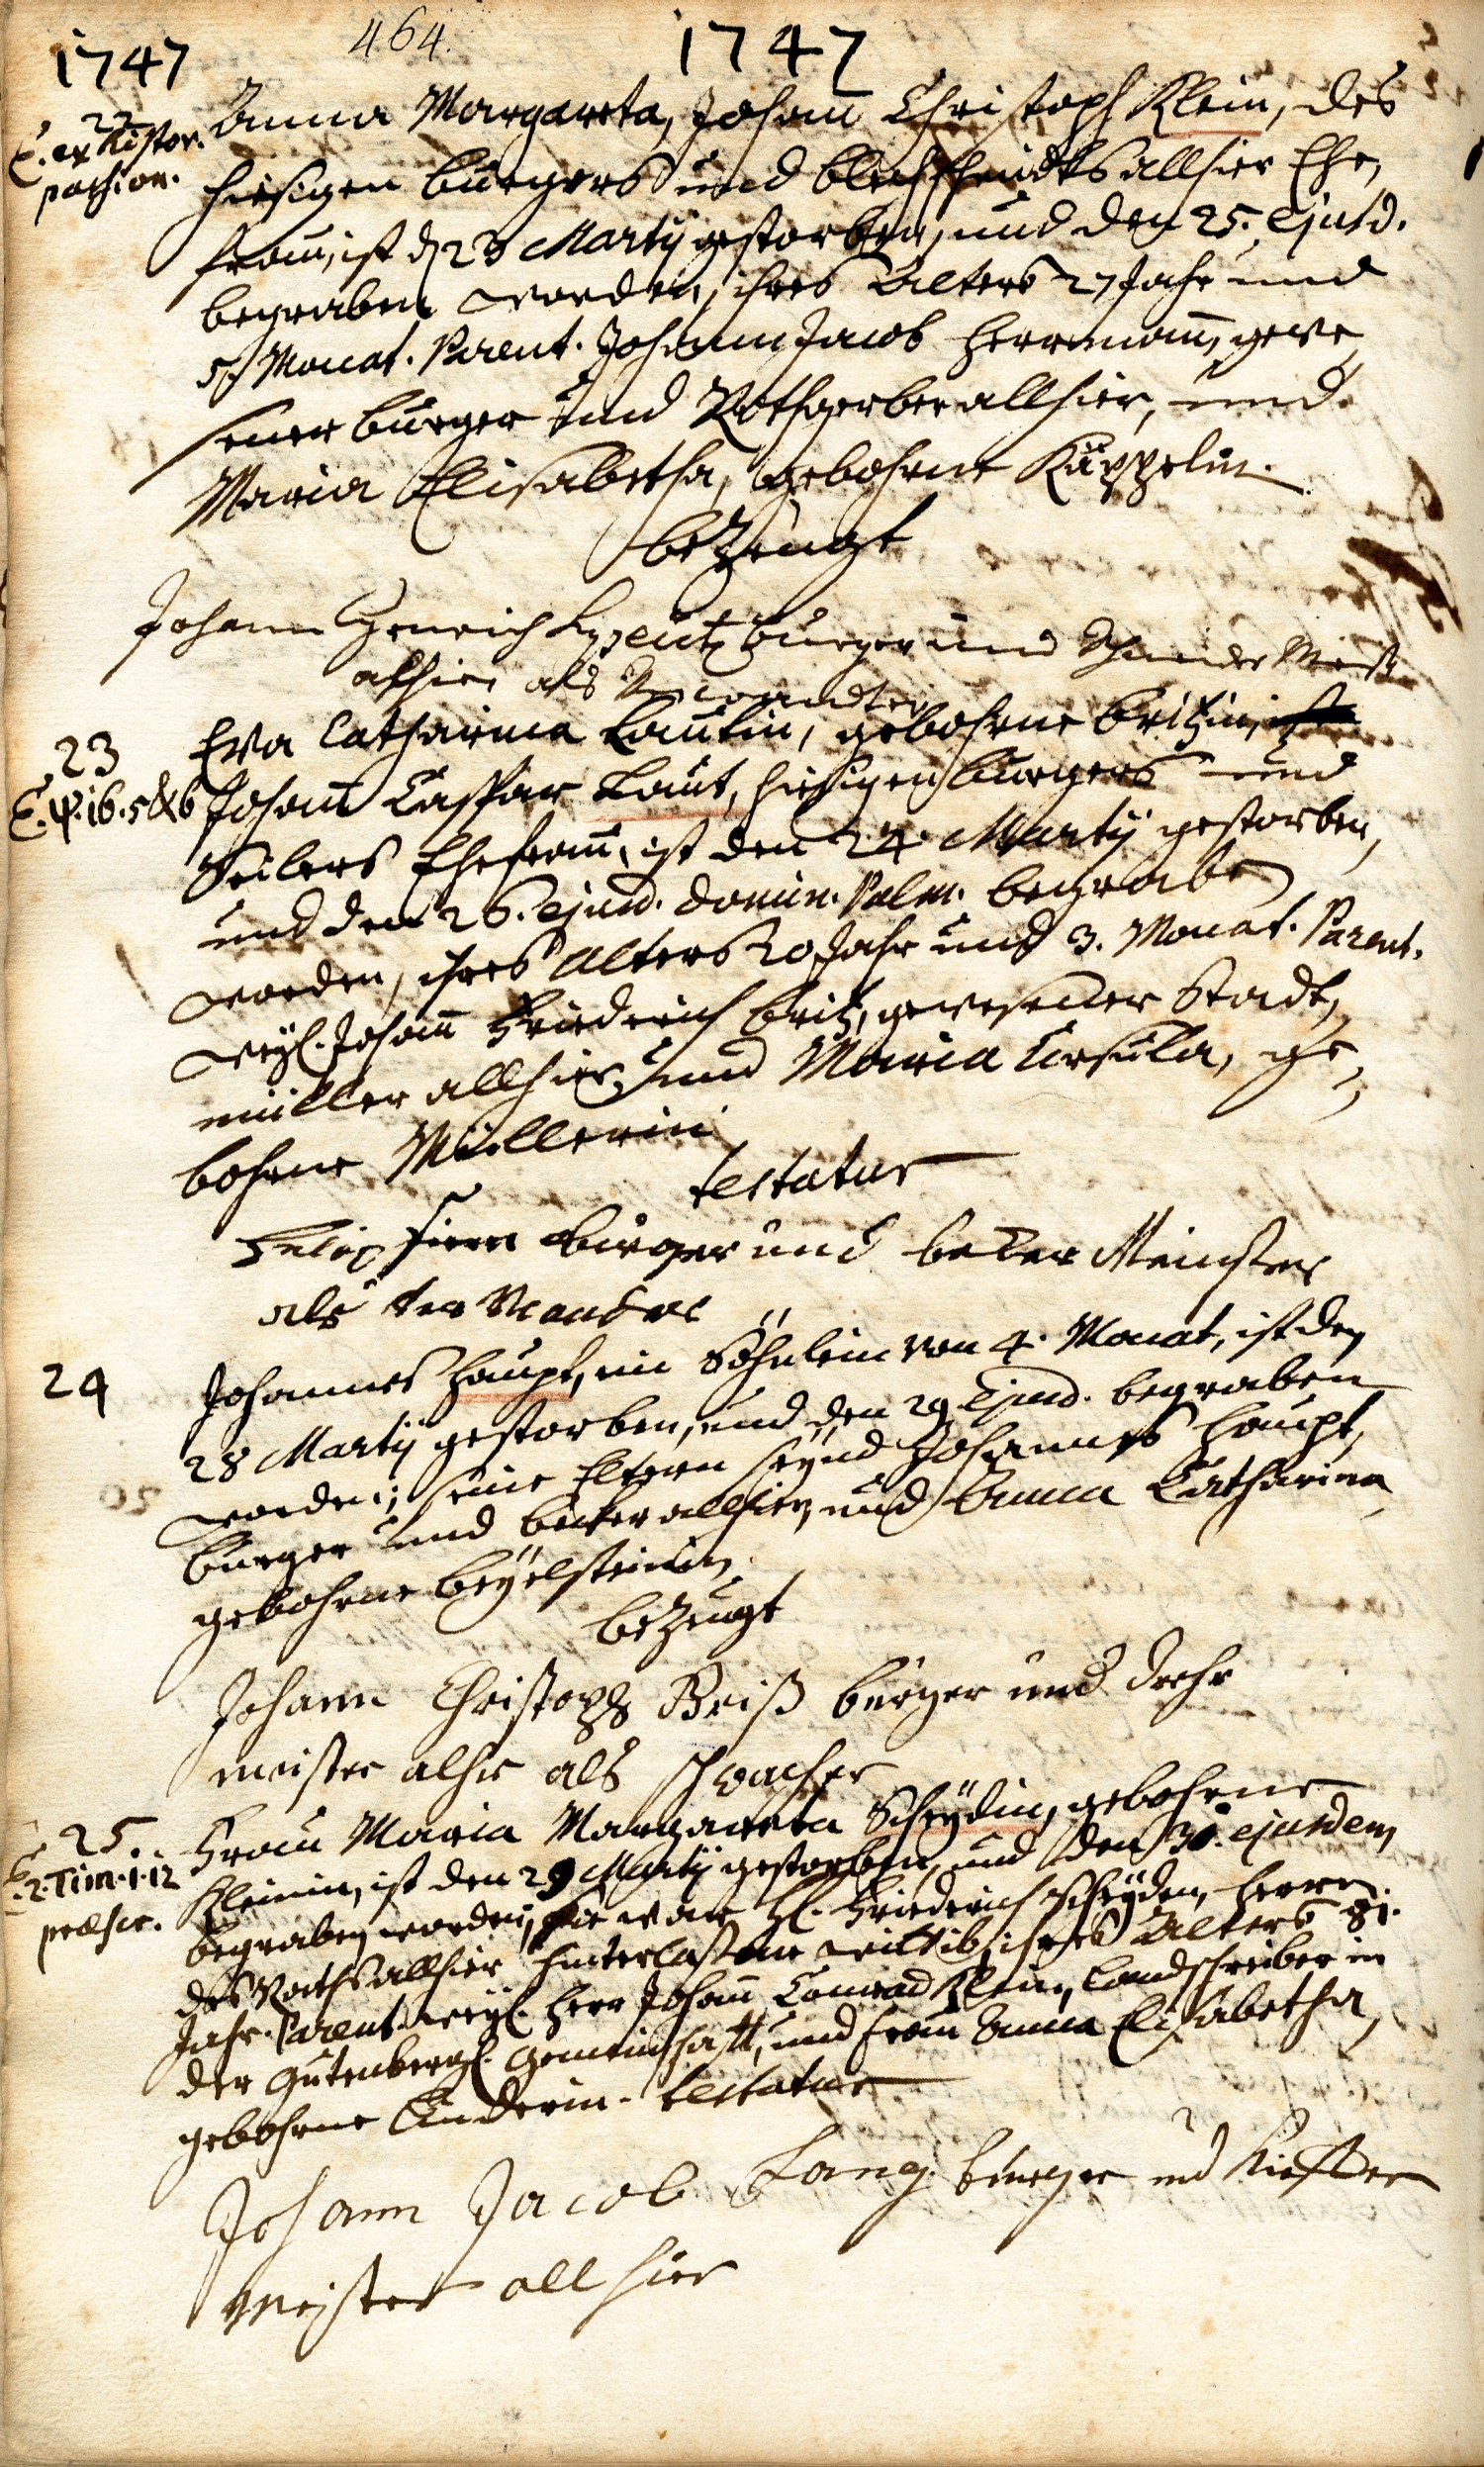 1747 464. 1747
22
T. ex histor.
passion.
Anna Margareta, Johann Christoph Klein, des
hiesigen burgers und blechschmidts allhier Ehe,
frau, ist d 23 Martij gestorben, und den 25. ejusd.
begraben worden, ihres Alters 27 Jahr und
5 Monat. Parent. Johann Jacob Herrmann, gewe,
sener burger und Rothgerber allhier, und
Maria Elisabetha, gebohrne Käppelin.
bezeugt
Johann Henrich burger und Schneider Meist
alhier als
23
T. ψ. 16. 5 & 6
Eva Catharina Lautin, gebohrne Britzin,
Johann Caspar Laut, hiesigen burgers und
Seilers Ehefrau, ist den 24. Martij gestorben,
und den 26. ejusd. Domin. Palm. begraben
worden, ihres Alters 20 Jahr und 3. Monat. Parent.
weyl. Johann Friedrich Britz, gewesener Stadt,
müller allhier, und Maria Ursula, ge,
bohrne Müllerin
testatur
burger und becker Meinster
als
24
Johannes Haupt, ein Söhnlein von 4. Monat, ist den
28 Martij gestorben, und den 29 Ejusd. begraben
worden; seine Eltern seynd Johannes Haupt,
burger und becker allhier, und Anna Catharina
gebohrne Beyelsteinin.
bezeugt
Johann Christoph Briß burger und dreher
meister alhier als schwacher
25.
T. 2. Tim. 1. 12
prælect.
Frau Maria Margareta Scheydin, gebohrne
Kleinin, ist den 29 Martij gestorben, und den 30. ejusdem
begraben worden; sie war H. Friederich Scheyden, Herrn
des Raths allhier hinterlassene wittib, ihres Alters 81.
Jahr. Parent. weyl. Herr Johann Conrad Klein, Landschreiber in
der Gutenbergl. Gemeinschafft, und Frau Anna Elisabetha,
gebohrne Linderin. testatur
Johann Jacob Lang burger und Kieffer
meister all hier